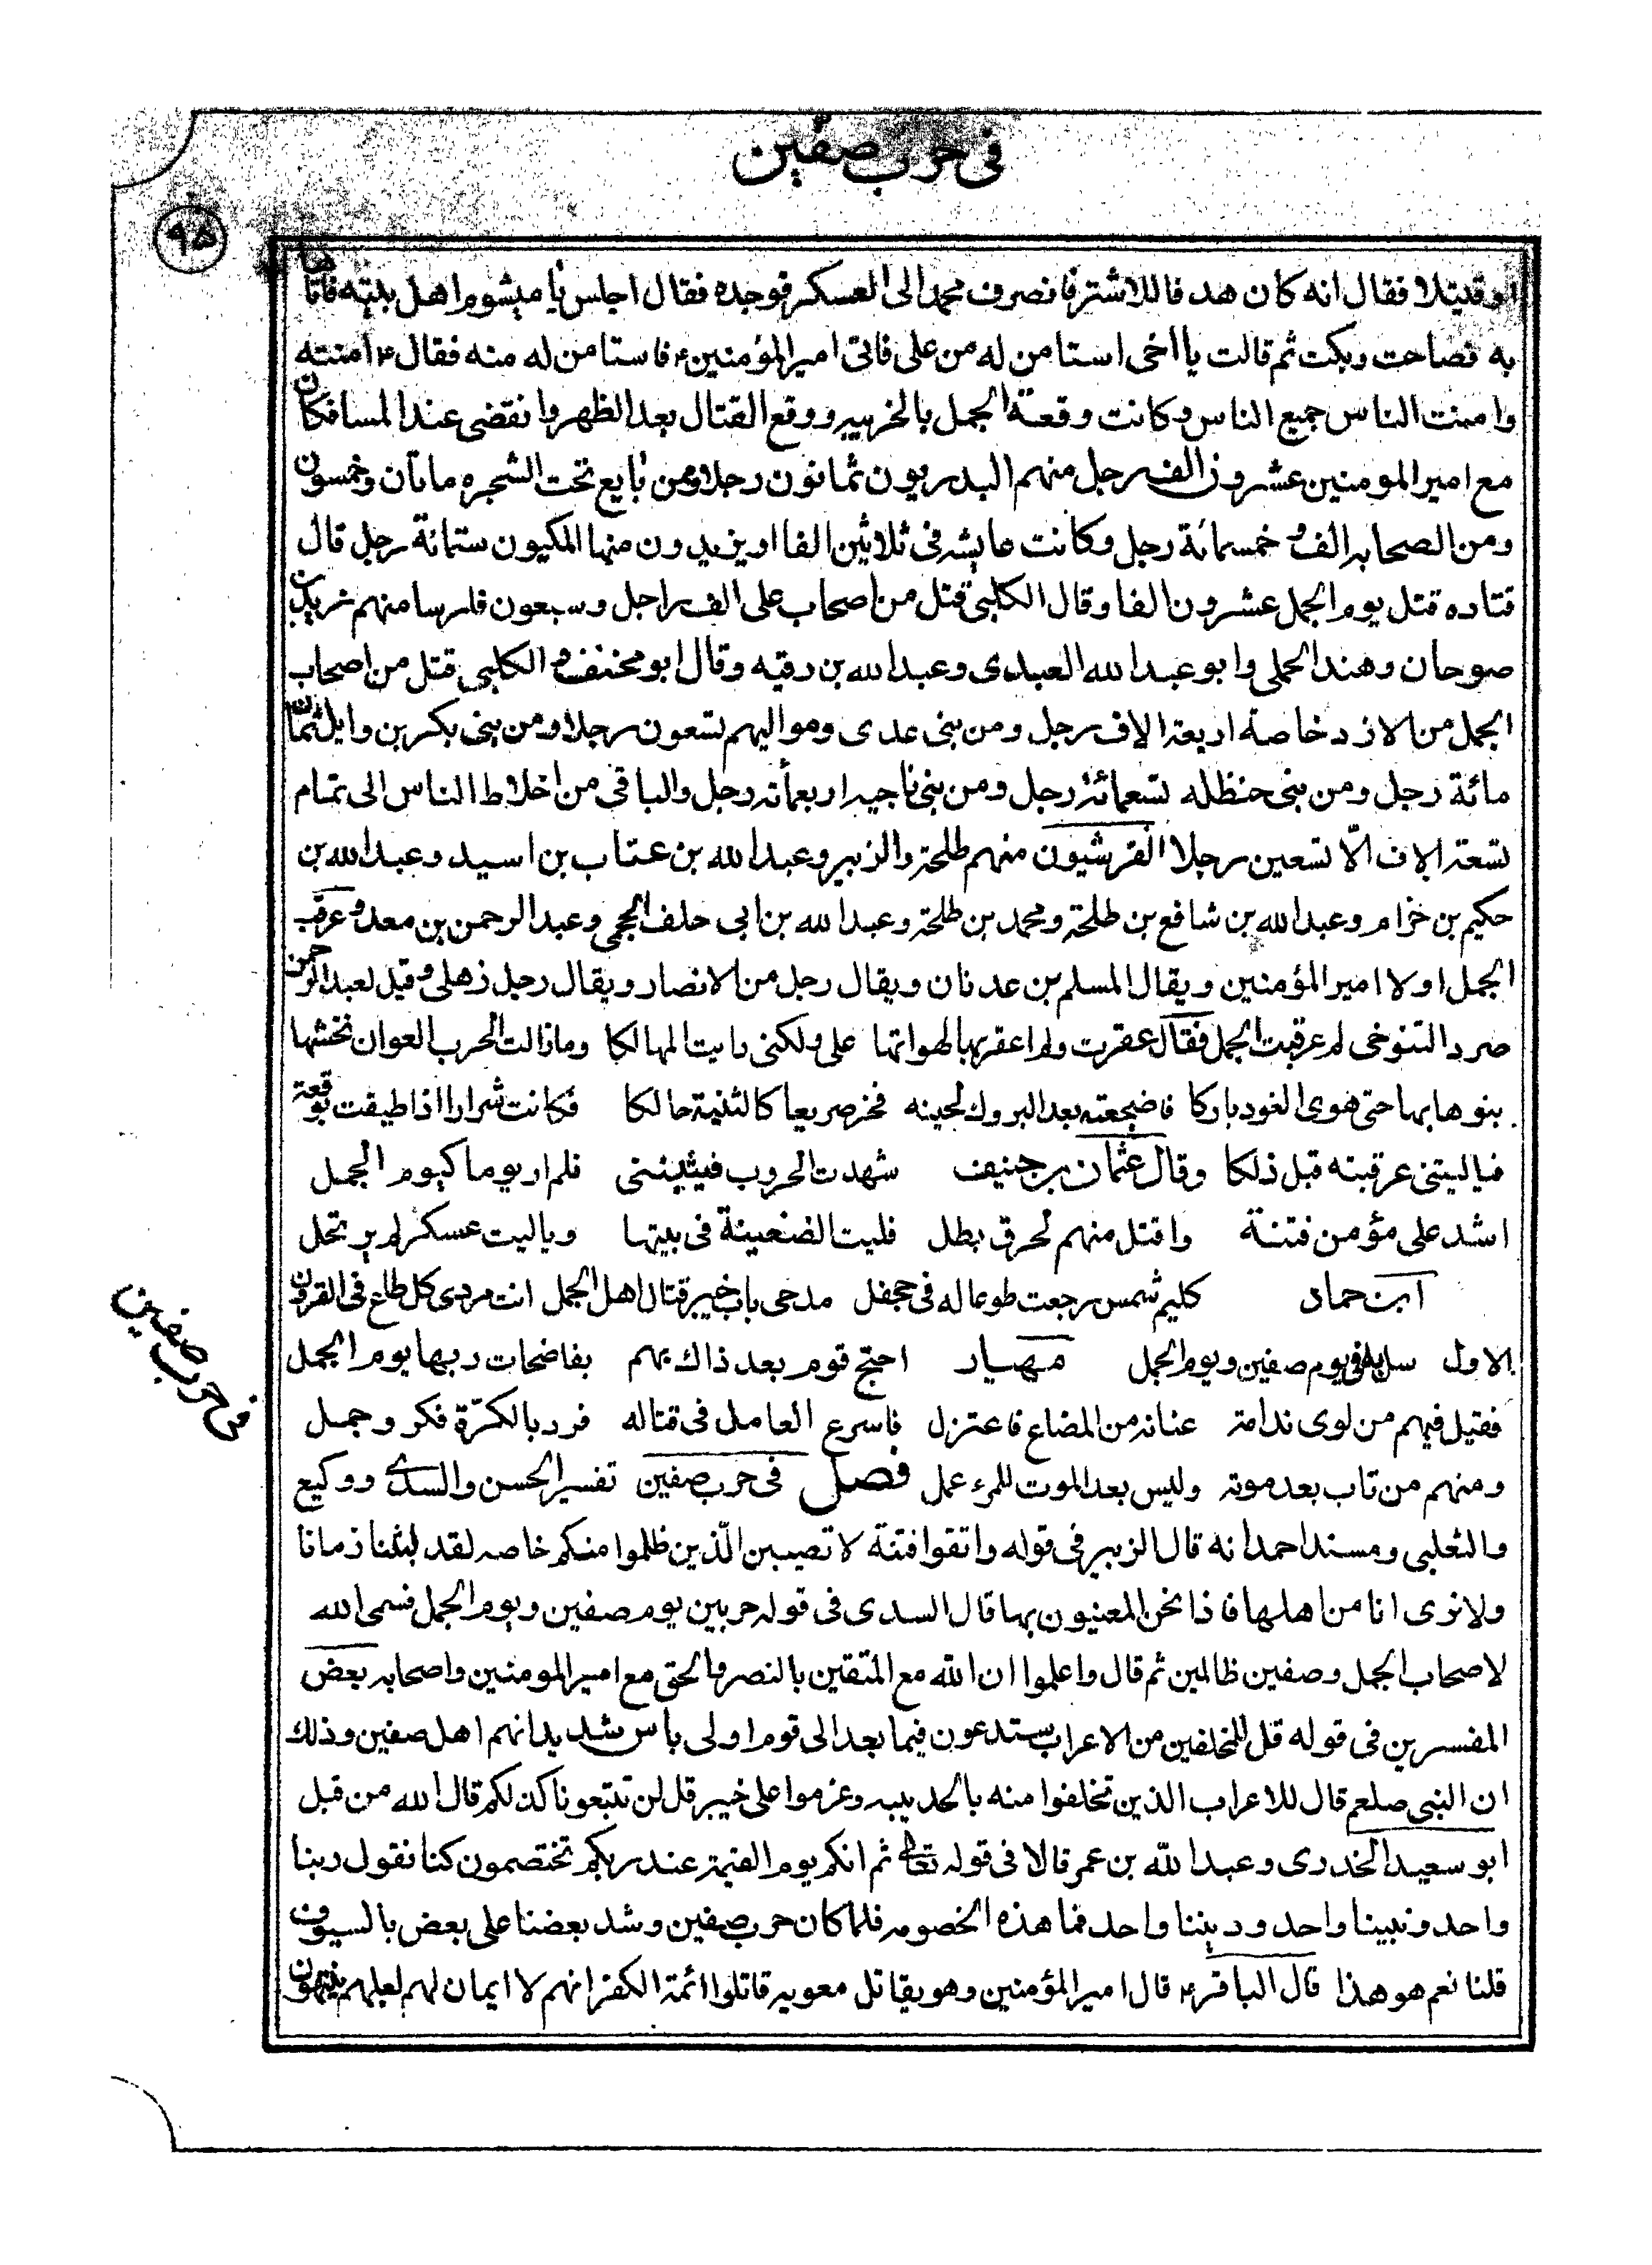 فى حرب صفين
٩۵
او قتيلا فقال انه كان هدفا للاشتر فانصرف محمد الى العسكر فوجده فقال اجلس يا ميشوم اهل بيته فاتاها
به فصاحت وبكت ثم قالت يا اخى استامن له من على فاتى امير المؤمنين ع فاستامن له منه فقال ع امنته
وامنت الناس جميع الناس وكانت وقعة الجمل بالخريبه ووقع القتال بعد الظهر وانقضى عند المسا فكان
مع امير المومنين عشرون الف رجل منهم البدريون ثمانون رجلا وممن بايع تحت الشجره ماتان وخمسون
ومن الصحابه الف و خمسمائة رجل وكانت عايشه فى ثلاثين الفا او يزيدون منها المكيون ستمائة رجل قال
قتاده قتل يوم الجمل عشرون الفا وقال الكلبى قتل من اصحاب على الف راجل وسبعون فارسا منهم زيد بن
صوحان وهند الجملى وابو عبد الله العبدى وعبد الله بن رقيه وقال ابو مخنف و الكلبى قتل من اصحاب
الجمل من الازد خاصة اربعة الاف رجل ومن بنى عدى ومواليهم تسعون رجلا ومن بنى بكر بن وايل ثمان
مائة رجل ومن بنى حنظله تسعمائة رجل ومن بنى ناجيه اربعمأته رجل والباقى من اخلاط الناس الى تمام
تسعة الاف الّا تسعين رجلا القرشيون منهم طلحة والزبير وعبد الله بن عتاب بن اسيد وعبد الله بن
حكيم بن خزام وعبد الله بن شافع بن طلحة ومحمد بن طلحة وعبد الله بن ابى خلف الجمحى وعبد الرحمن بن معد و عرقب
الجمل اولا امير المؤمنين ويقال المسلم بن عدنان ويقال رجل من الانصار ويقال رجل ذهلى وقيل لعبد الرحمن
صرد التنوخى لم عرقبت الجمل فقال عقرت ولم اعقر بها لهوانها على ولكنى رايت المهالكا وما زالت الحرب العوان تحشها
بنوها بها حتى هوى الغود باركا فاضجعته بعد البروك لجنبه فخر صريعا كالثنية حالكا فكانت شرارا اذ اطيفت بوقعة
فيا ليتنى عرقبته قبل ذلكا وقال عثمان بن حنيف شهدت الحروب فشيبننى فلم ار يوما كيوم الجمل
اشد على مؤمن فتنة واقتل منهم لحرق بطل فليت الضعينة فى بيتها ويا ليت عسكر لم يرتحل
ابن حماد كليم شمس رجعت طوعا له فى جحفل مدحى باب خيبر قتال اهل الجمل انت مردى كل طاع فى القرون
الاول سل به فى يوم صفين ويوم الجمل مهيار احتج قوم بعد ذاك بهم بفاضحات ربها يوم الجمل
فقيل فيهم من لوى ندامة عنانه من المضاع فاعتزل فاسرع العامل فى قتاله فرد بالكرّة فكر وحمل
ومنهم من تاب بعد موته وليس بعد الموت للمرء عمل فصل فى حرب صفين تفسير الحسن والسدى ووكيع
والثعلبى ومسند احمد انه قال الزبير فى قوله واتقوا فتنة لا تصيبن الّذين ظلموا منكم خاصه لقد لبثنا زمانا
ولا نرى انا من اهلها فاذا نحن المعنيون بها قال السدى فى قوله حربين يوم صفين ويوم الجمل فسمى الله
لاصحاب الجمل وصفين ظالمين ثم قال واعلموا ان الله مع المتقين بالنصر والحق مع امير المومنين واصحابه بعض
المفسرين فى قوله قل للمخلفين من الاعراب ستدعون فيما بعد الى قوم اولى باس شديد انهم اهل صفين وذلك
ان النبى صلعم قال للاعراب الذين تخلفوا منه بالحديبيه وعزموا على خيبر قل لن تتبعونا كذلكم قال الله من قبل
ابو سعيد الخدرى وعبد الله بن عمر قالا فى قوله تعالى ثم انكم يوم القيمة عند ربكم تختصمون كنا نقول ربنا
واحد ونبينا واحد وديننا واحد فما هذه الخصومه فلما كان حرب صفين وشد بعضنا على بعض بالسيوف
قلنا نعم هو هذا قال الباقر ع قال امير المؤمنين وهو يقاتل معويه قاتلوا ائمة الكفر انهم لا ايمان لهم لعلهم ينتهون
فى حرب صفين